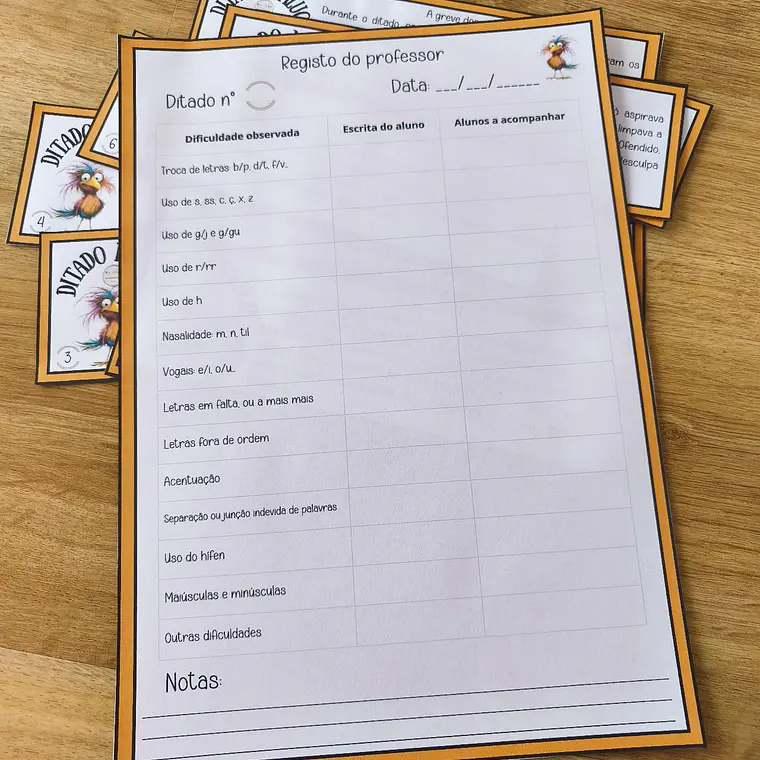 Durante o ditado,
A greve dos
ram os
DITADO
6
aspirava
limpava a
Ofendido,
esculpa
4
DITADO
3
Registo do professor
Ditado nº
Data: ___/___/______
Dificuldade observada Escrita do aluno Alunos a acompanhar
Troca de letras: b/p, d/t, f/v...
Uso de s, ss, c, ç, x, z
Uso de g/j e g/gu
Uso de r/rr
Uso de h
Nasalidade: m, n, til
Vogais: e/i, o/u...
Letras em falta, ou a mais mais
Letras fora de ordem
Acentuação
Separação ou junção indevida de palavras
Uso do hífen
Maiúsculas e minúsculas
Outras dificuldades
Notas: